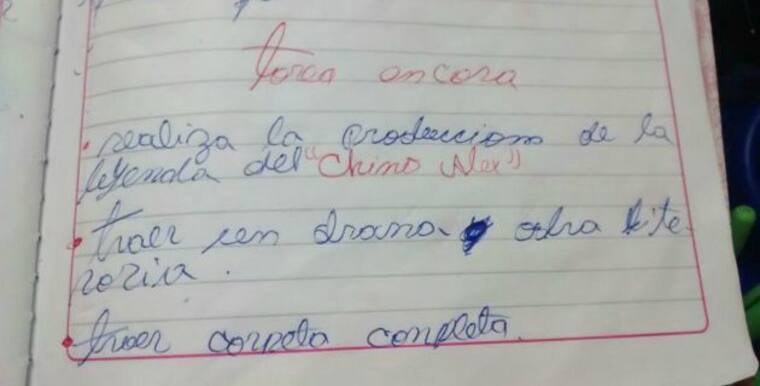 Torea ancora
• realiza la produccion de la
leyenda del "Chino Mex"
• traer un drama, obra lite
raria.
• traer carpeta completa.